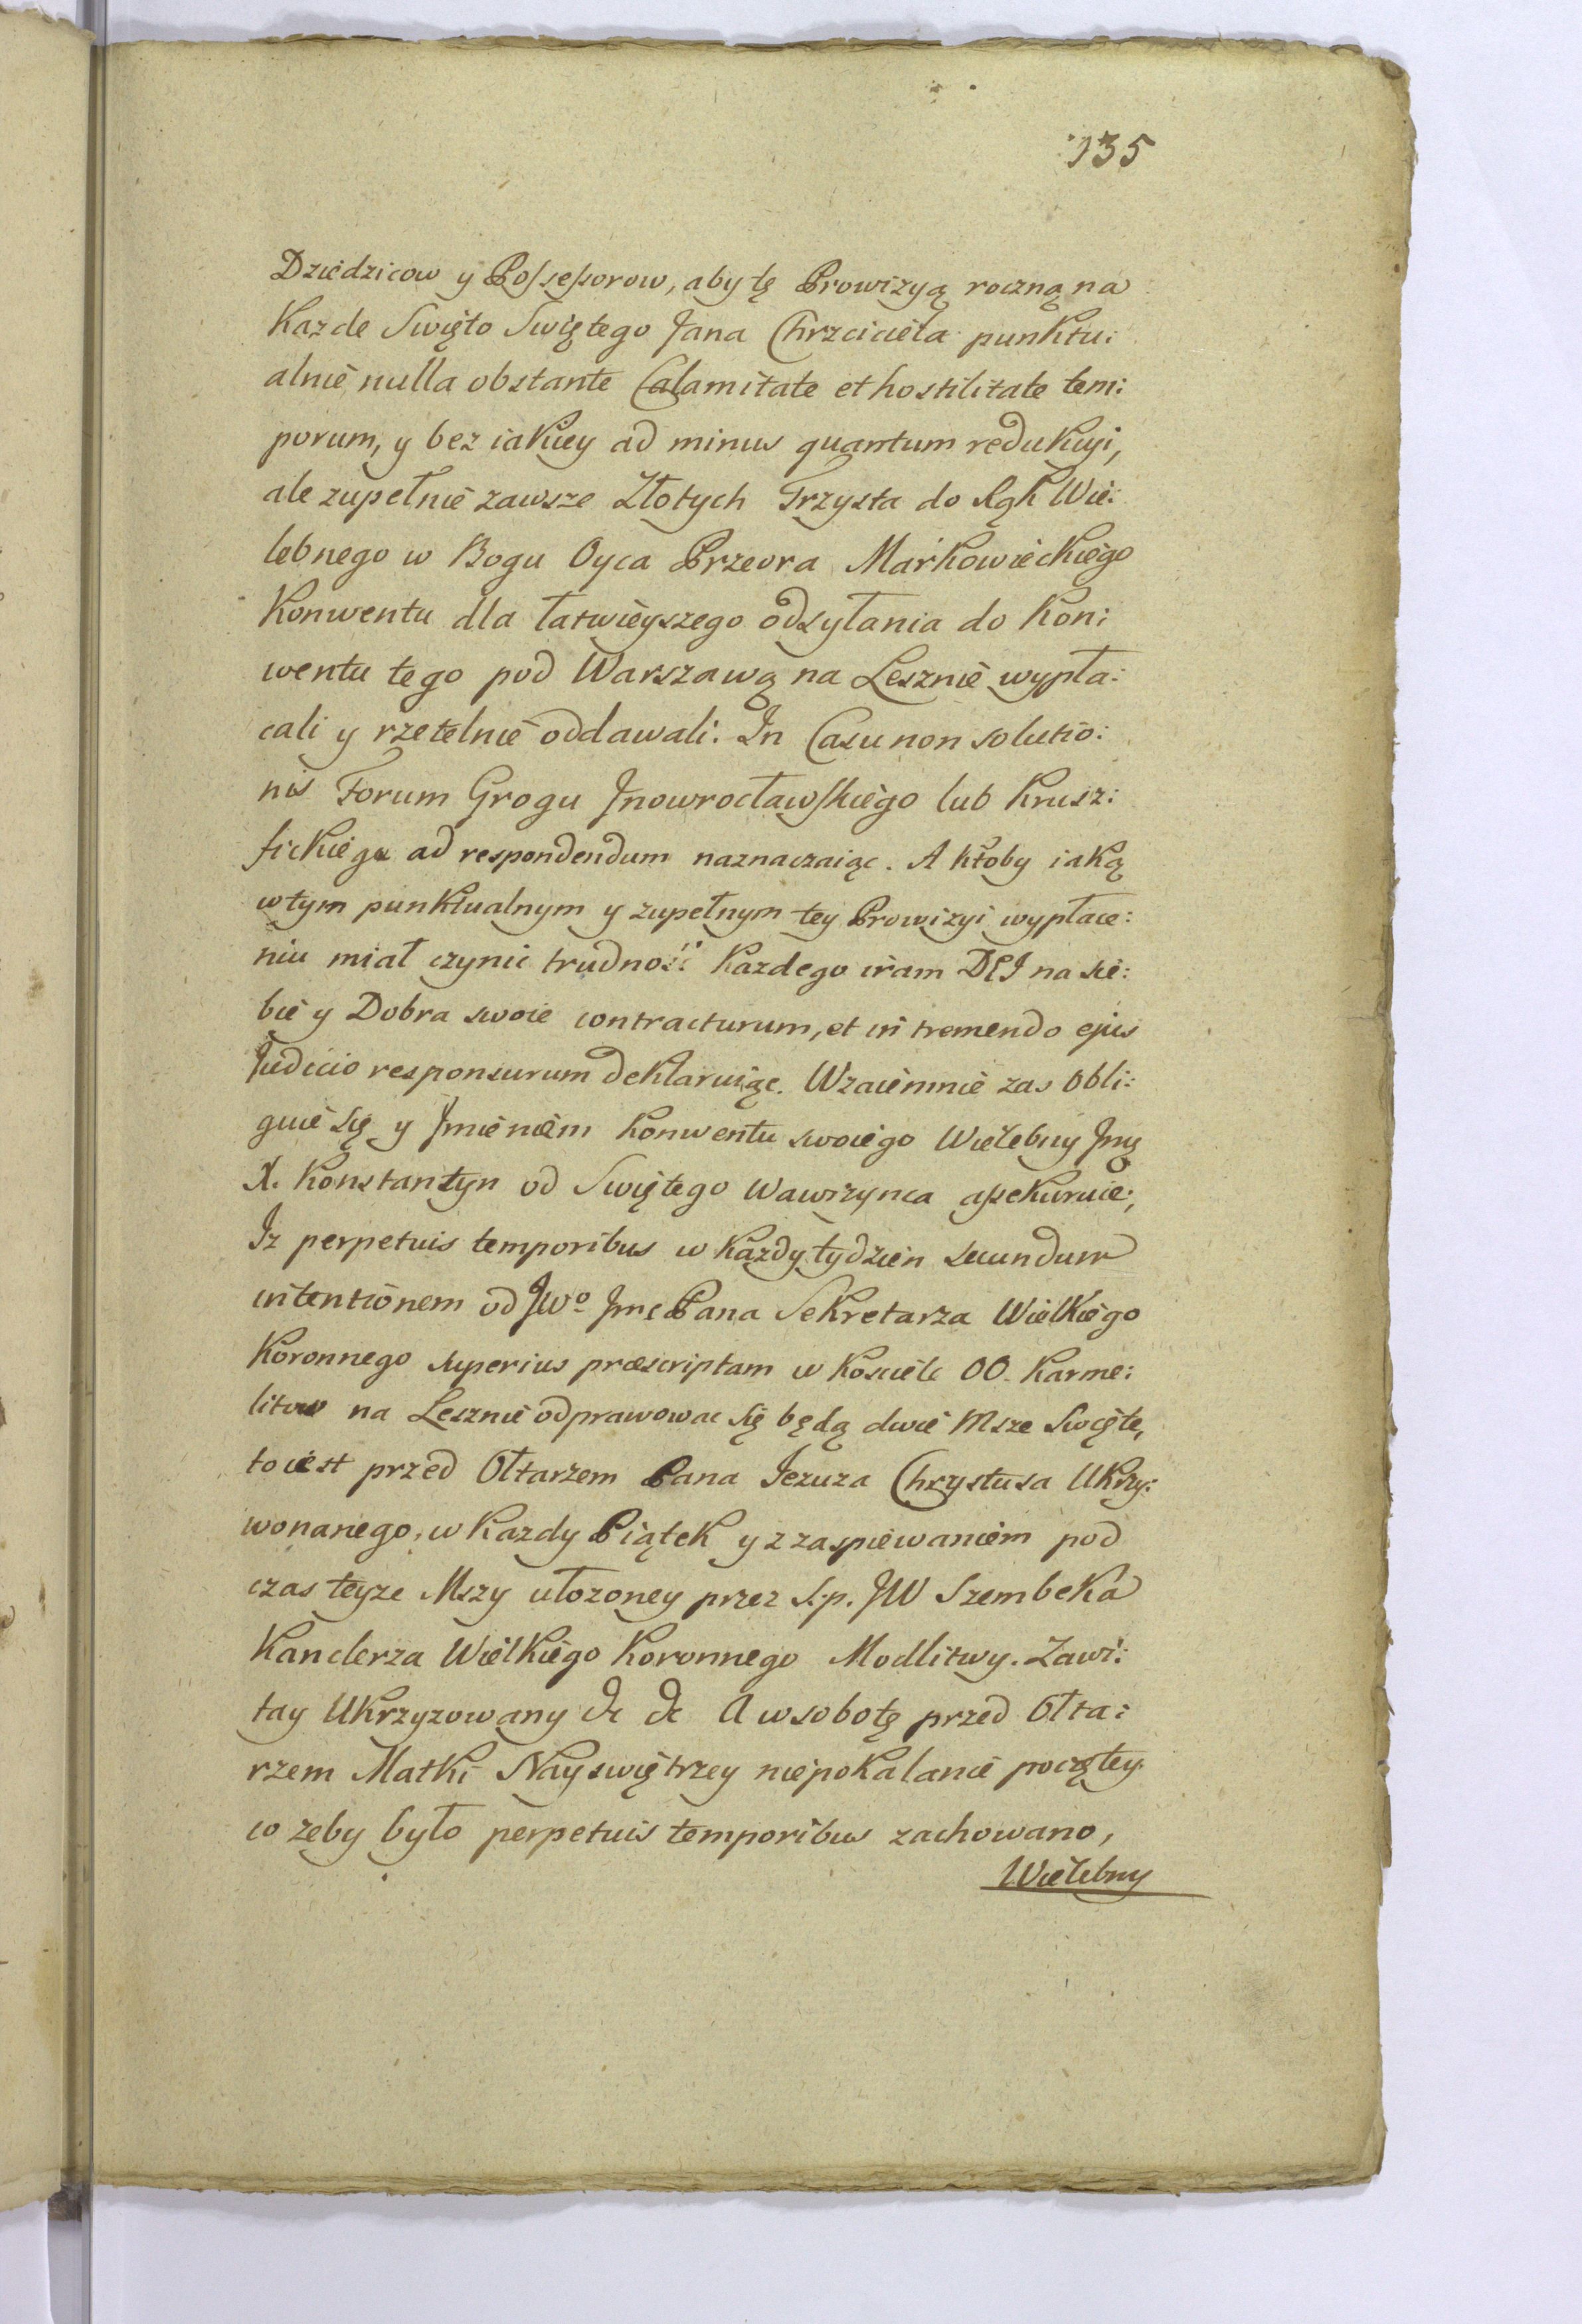 135
Dziedzicow y Possessorow, aby tę Prowizyą roczną na
Kazde Swięto Swiętego Jana Chrzciciela punktu:
alnie nulla obstante Calamitate et hostilitate tem:
porum, y bez iakiey ad minus quantum redukcyi,
ale zupełnie zawsze Złotych Trzysta do Rąk Wie:
lebnego w Bogu Oyca Przeora Markowieckiego
Konwentu dla łatwieyszego odsyłania do Kon:
wentu tego pod Warszawą na Lesznie wypła:
cali y rzetelnie oddawali. In Casu non solutio:
nis Forum Grogu Jnowrocławskiego lub Krusz:
fickiego ad respondendum naznaczaiąc. A ktoby iaką
w tym punktualnym y zupełnym tey Prowizyi wypłace:
niu miał czynic trudność Kazdego iram DEI na sie:
bie y Dobra swoie contracturum, et in tremendo ejus
Judicio responsurum deklaruiąc. Wzaiemnie zas Obli:
guie się y Jmieniem Konwentu swoiego Wielebny Jmę
X. Konstantyn od Swiętego Wawrzynca assekuruie;
Jz perpetuis temporibus w Kazdy tydzien secundum
intentionem od JWo Jmc Pana Sekretarza Wielkiego
Koronnego superius præscriptam w Kosciele OO. Karme:
litow na Lesznie odprawowac się będą dwie Msze Swięte,
to iest przed Ołtarzem Pana Jezuza Chrystusa Ukrzy:
wonanego, w Kazdy Piątek y z zaspiewaniem pod
czas teyze Mszy ułozoney przez S.p. JW Szembeka
Kanclerza Wielkiego Koronnego Modlitwy. Zawi:
tay Ukrzyzowany &c &c A w sobotę przed Ołta:
rzem Matki Nayswiętrzey niepokalanie poczętey.
co zeby było perpetuis temporibus zachowano,
Wielebny